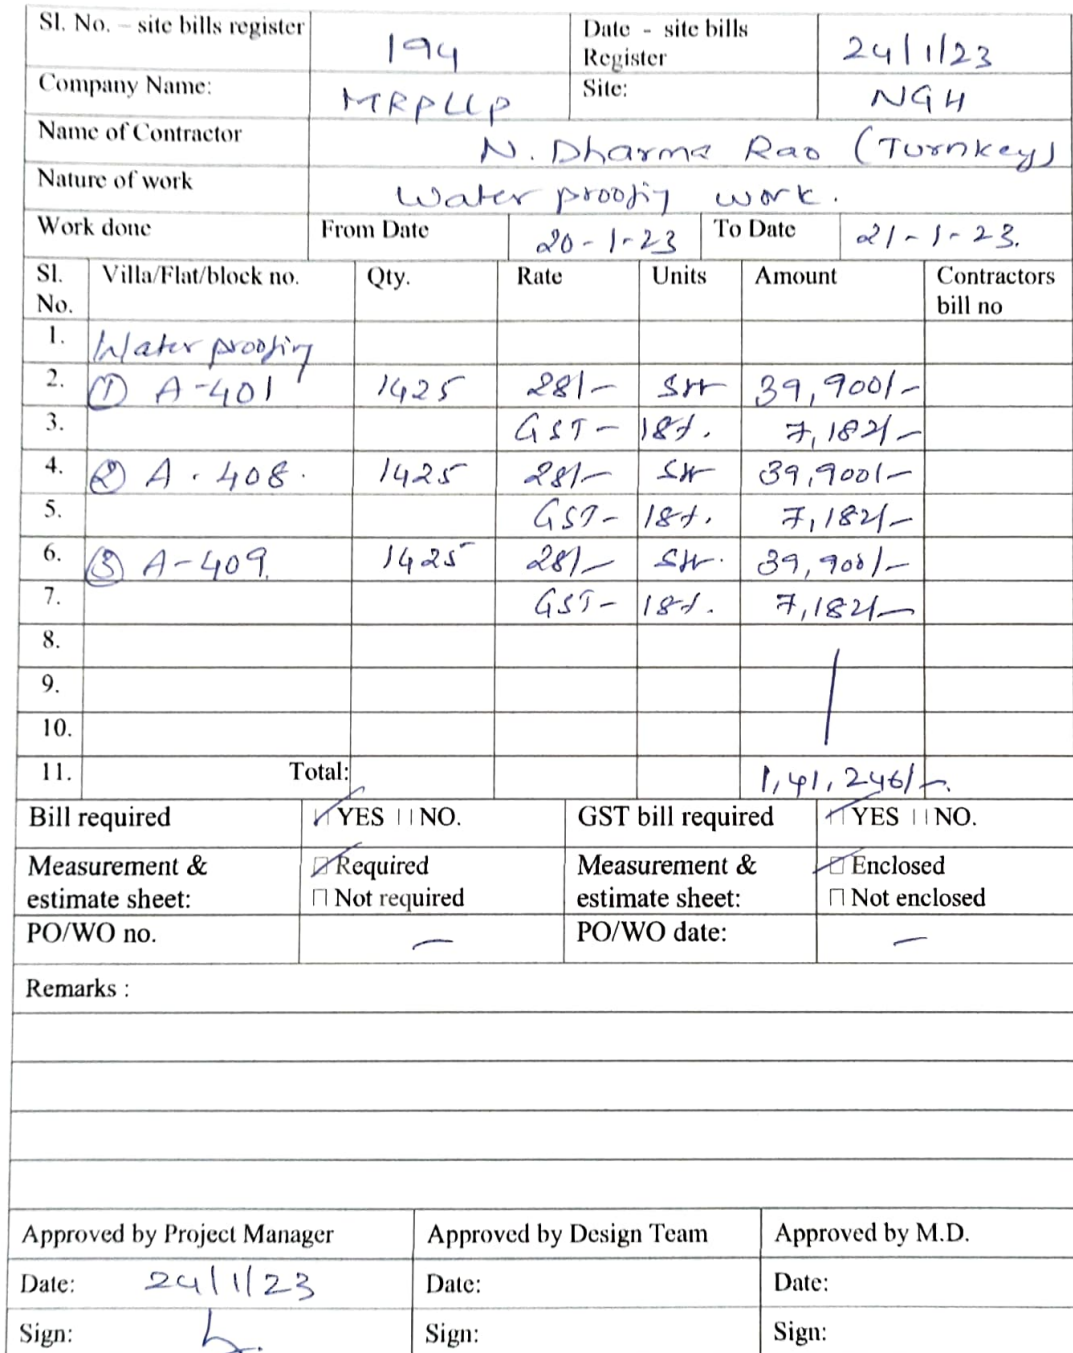 Sl. No. – site bills register 194 Date - site bills Register 24/1/23
Company Name: MRPLLP Site: NGH
Name of Contractor N. Dharma Rao (Turnkey)
Nature of work Water proofing work.
Work done From Date 20-1-23 To Date 21-1-23.
Sl. No. Villa/Flat/block no. Qty. Rate Units Amount Contractors bill no
1. Water proofing
2. (1) A-401 1425 28/- Sft 39,900/-
3. GST- 18%. 7,182/-
4. (2) A-408. 1425 28/- Sft 39,900/-
5. GST- 18%. 7,182/-
6. (3) A-409. 1425 28/- Sft. 39,900/-
7. GST- 18%. 7,182/-
8.
9.
10.
11. Total: 1,41,246/-.
Bill required YES NO. GST bill required YES NO.
Measurement & estimate sheet: Required Measurement & estimate sheet: Enclosed
Not required Not enclosed
PO/WO no. – PO/WO date: –
Remarks :
Approved by Project Manager Approved by Design Team Approved by M.D.
Date: 24/1/23 Date: Date:
Sign: Sign: Sign: